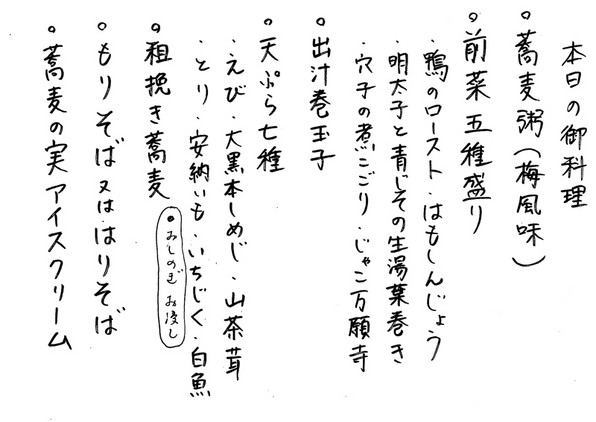 本日の御料理
◦蕎麦粥(梅風味)
◦前菜五種盛り
・鴨のロースト・はもしんじょう
・明太子と青じその生湯葉巻き
・穴子の煮こごり・じゃこ万願寺
◦出汁巻玉子
◦天ぷら七種
・えび・大黒本しめじ・山茶茸
・とり・安納いも・いちじく・白魚
◦粗挽き蕎麦
●おしのぎ お浸し
◦もりそば又ははりそば
◦蕎麦の実アイスクリーム